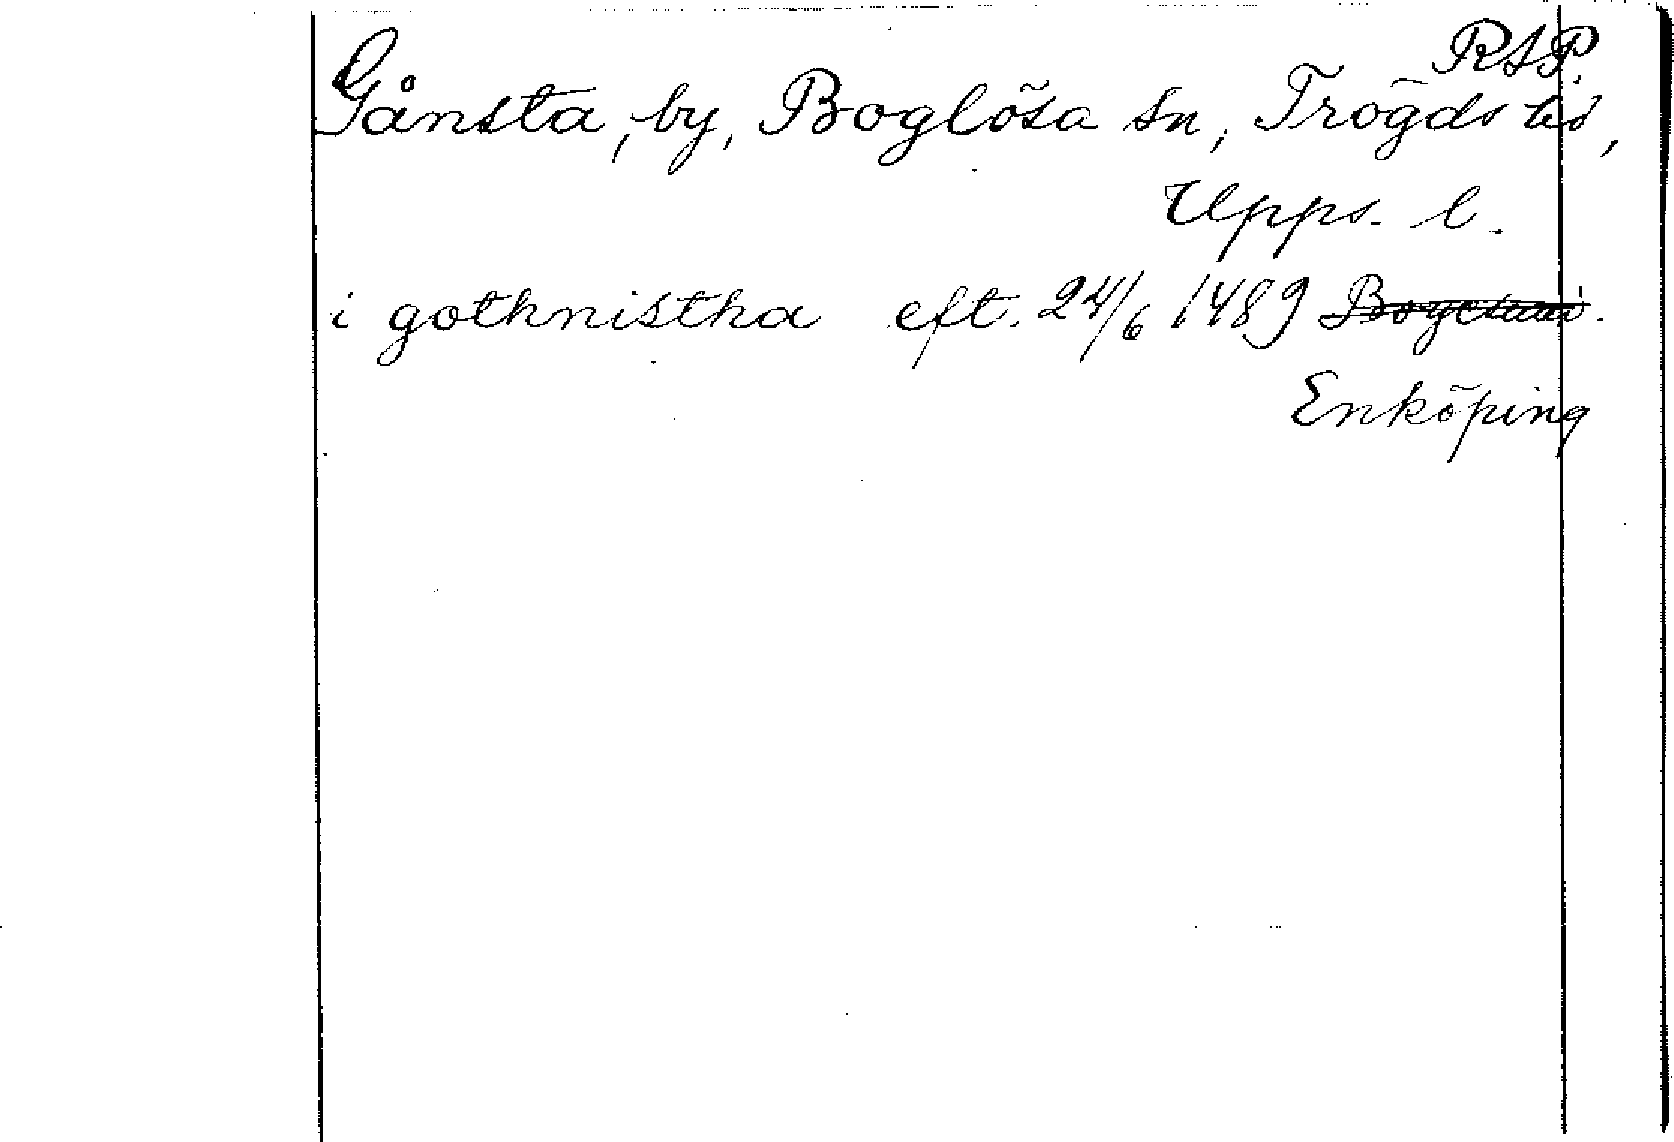 RAP.
Gånsta, by, Boglösa sn, Trögds hd,
Upps. l.
i gothnistha eft. 24/6 1489
Enköping